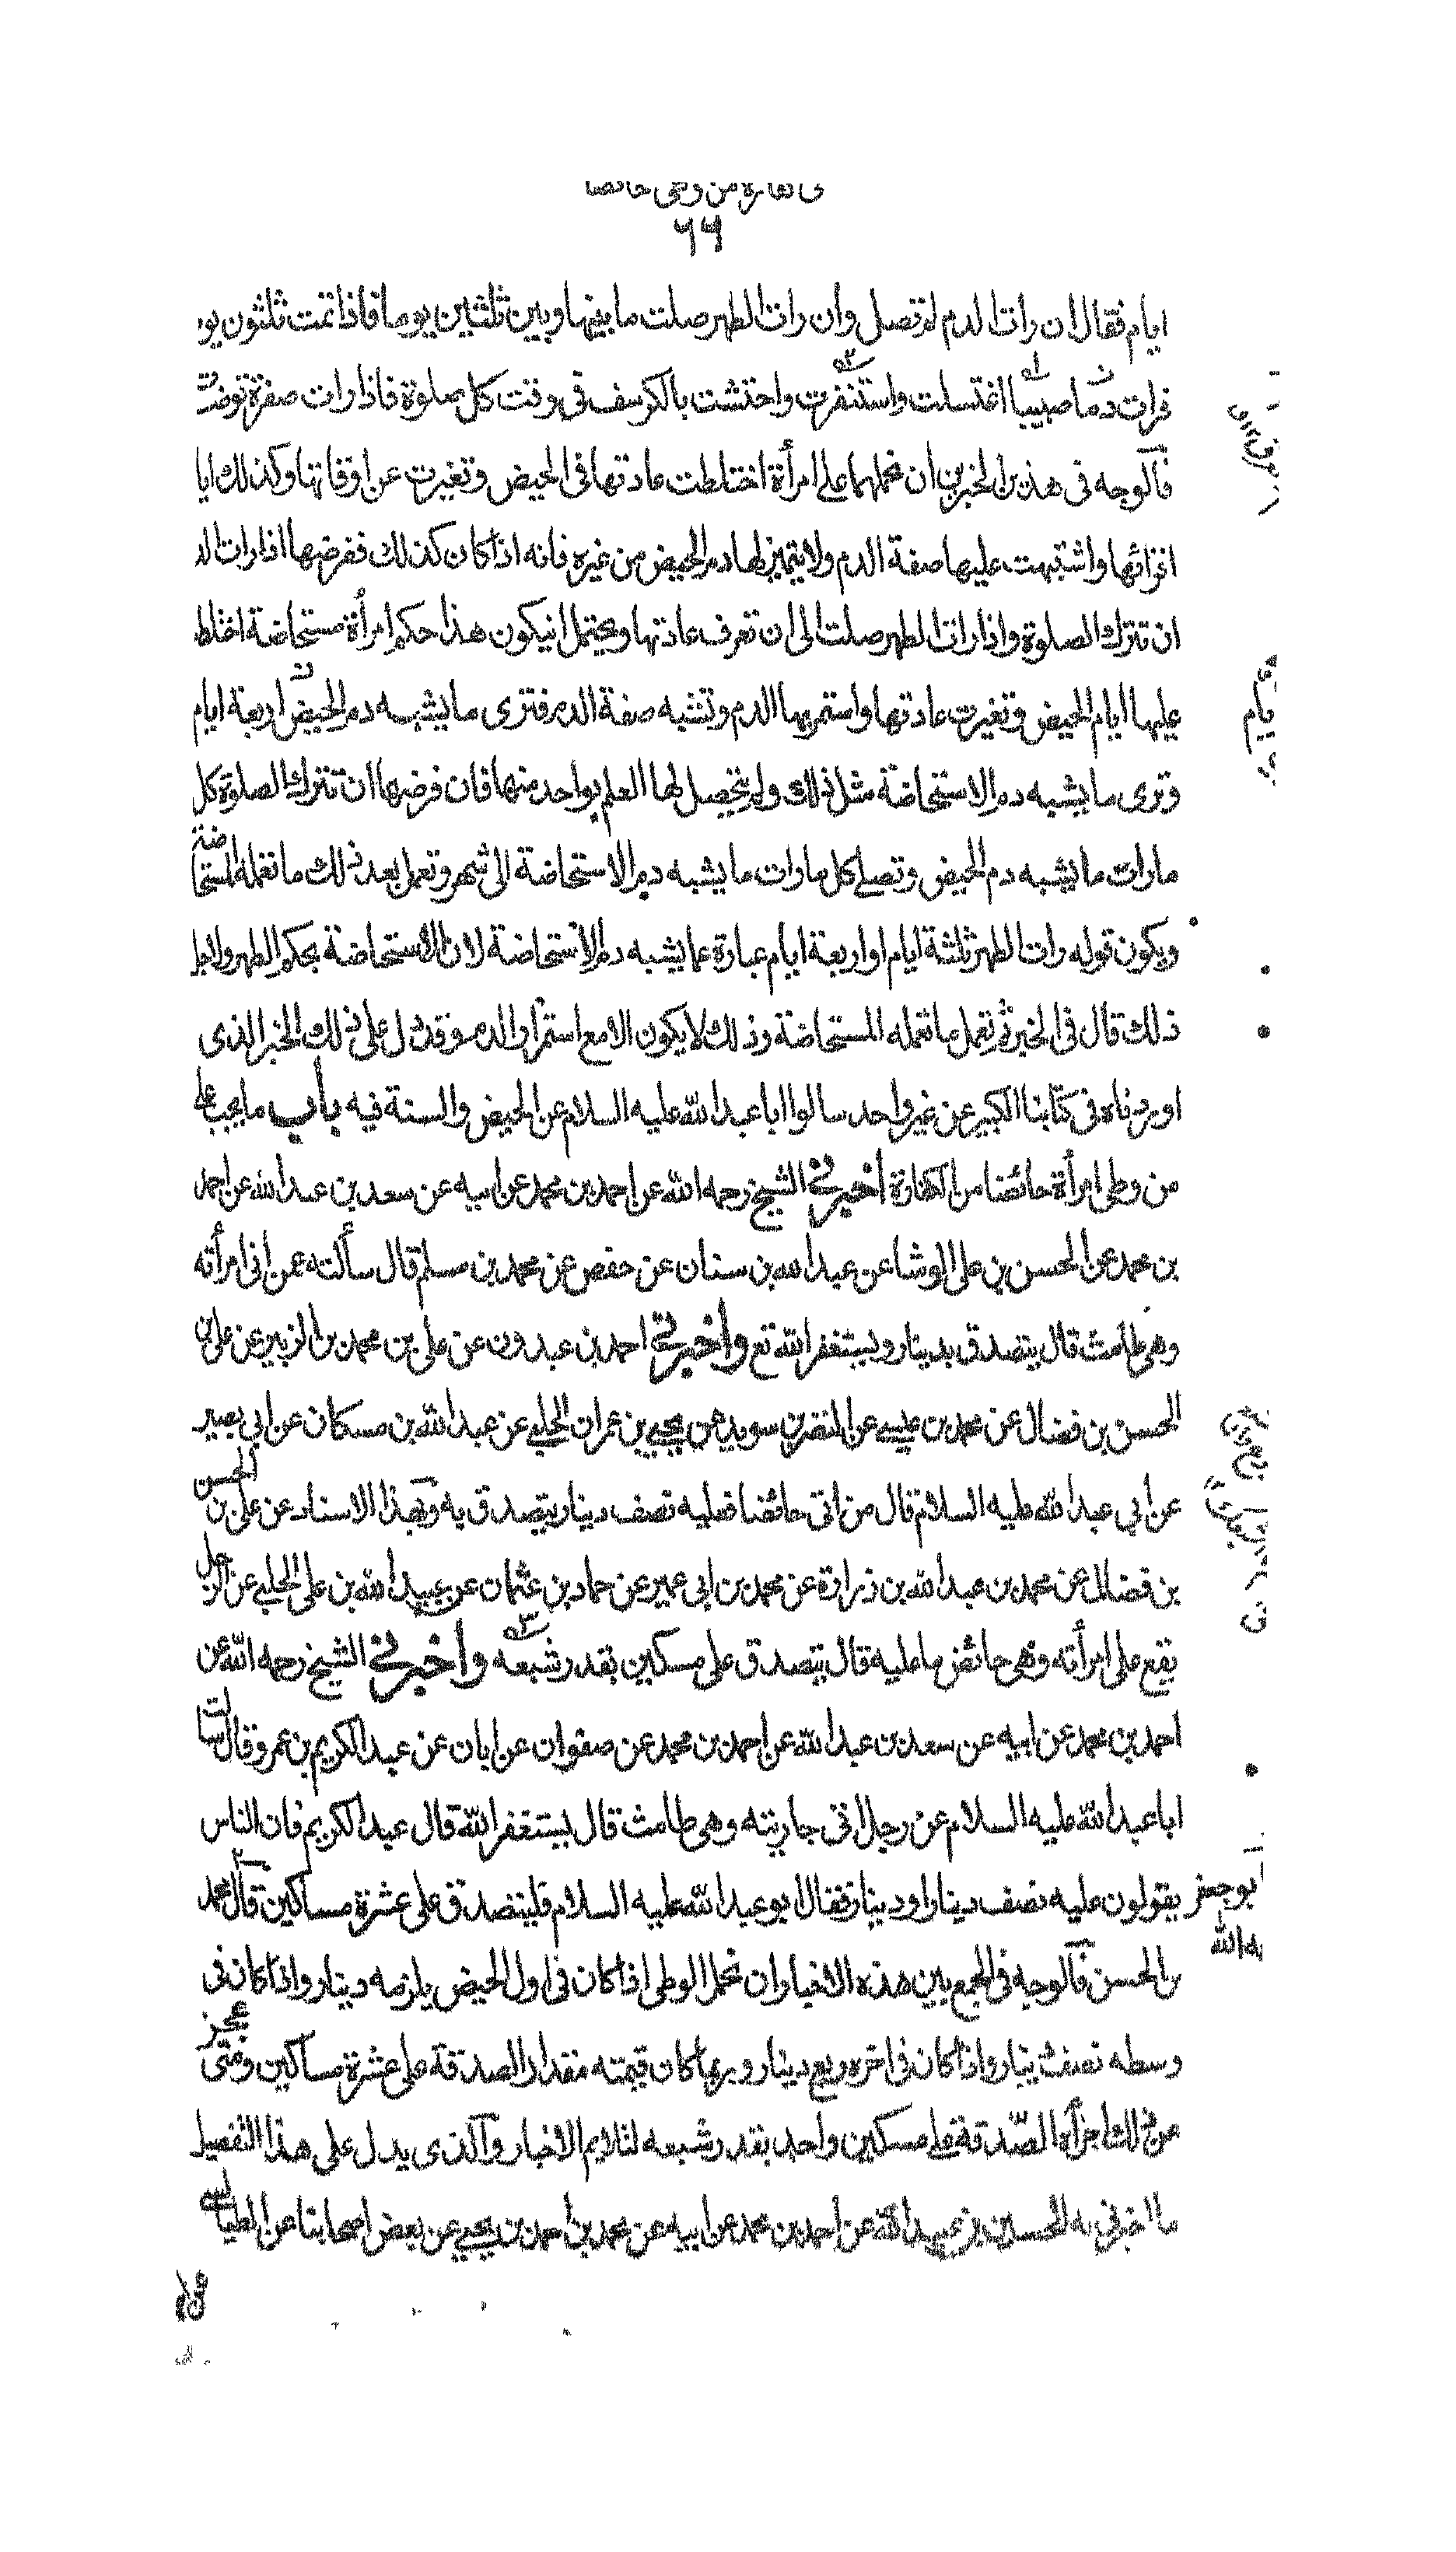 في كفارة من وطى حائضا
٦٦
ايام فقال ان رات الدم لم تصل وان رات الطهر صلت ما بينها وبين ثلثين يوما فاذا تمت ثلثون يو
فرات دما صبيبا اغتسلت واستثفرت واحتشت بالكرسف في وقت كل صلوة فاذا رات صفرة توضت
فالوجه في هذين الخبرين ان نحملهما على امرأة اختلطت عادتها في الحيض وتغيرت عن اوقاتها وكذلك ايا
اقرائها واشتبهت عليها صفة الدم ولا يتميز لها دم الحيض من غيره فانه اذا كان كذلك ففرضها اذا رات الد
ان تترك الصلوة واذا رات الطهر صلت الى ان تعرف عادتها ويحتمل ان يكون هذا حكم امرأة مستحاضة اختلط
عليها ايام الحيض وتغيرت عادتها واستمر بها الدم وتشبه صفة الدم فترى ما يشبه دم الحيض اربعة ايام
وترى ما يشبه دم الاستحاضة مثل ذلك ولم يتحصل لها العلم بواحد منها فان فرضها ان تترك الصلوة كل
ما رات ما يشبه دم الحيض وتصلى كل ما رات ما يشبه دم الاستحاضة الى شهر وتعمل بعد ذلك ما تعمله المستحاضة
ويكون قوله رات الطهر ثلثة ايام او اربعة ايام عبارة عما يشبه دم الاستحاضة لان الاستحاضة بحكم الطهر ولاجل
ذلك قال في الخبر ثم تعمل ما تعمله المستحاضة وذلك لا يكون الا مع استمرار الدم وقد دل على ذلك الخبر الذى
اوردناه في كتابنا الكبير عن غير واحد سالوا ابا عبد الله عليه السلام عن الحيض والسنة فيه باب ما يجب على
من وطى امرأة حائضا من الكفارة أخبرني الشيخ رحمه الله عن احمد بن محمد عن ابيه عن سعد بن عبد الله عن احمد
بن محمد عن الحسن بن على الوشا عن عبد الله بن سنان عن حفص عن محمد بن مسلم قال سألته عمن اتى امرأته
وهى طامث قال يتصدق بدينار ويستغفر الله تع وأخبرني احمد بن عبدون عن على بن محمد بن الزبير عن على بن
الحسن بن فضال عن محمد بن عيسى عن النضر بن سويد عن يحيى بن عمران الحلبى عن عبد الله بن مسكان عن ابي بصير
عن ابي عبد الله عليه السلام قال من اتى حائضا فعليه نصف دينار يتصدق به وبهذا الاسناد عن على بن الحسن
بن فضال عن محمد بن عبد الله بن زرارة عن محمد بن ابى عمير عن حماد بن عثمان عن عبيد الله بن على الحلبى عن الرجل
يقع على امرأته وهى حائض ما عليه قال يتصدق على مسكين بقدر شبعه وأخبرني الشيخ رحمه الله عن
احمد بن محمد عن ابيه عن سعد بن عبد الله عن احمد بن محمد عن صفوان عن ابان عن عبد الكريم بن عمرو قال سالت
ابا عبد الله عليه السلام عن رجل اتى جاريته وهى طامث قال يستغفر الله قال عبد الكريم فان الناس
يقولون عليه نصف دينار او دينار فقال ابو عبد الله عليه السلام فليتصدق على عشرة مساكين قال محمد
بن الحسن فالوجه في الجمع بين هذه الاخبار ان نحمل الوطى اذا كان في اول الحيض يلزمه دينار واذا كان في
وسطه نصف دينار واذا كان في اخره ربع دينار وربما كان قيمته مقدار الصدقة على عشرة مساكين ومتى عجز
عن ذلك اجزأه الصدقة على مسكين واحد بقدر شبعه لتلايم الاخبار والذى يدل على هذا التفصيل
ما اخبرني به الحسين بن عبيد الله عن احمد بن محمد عن ابيه عن محمد بن احمد بن يحيى عن بعض اصحابنا عن الطيالسي